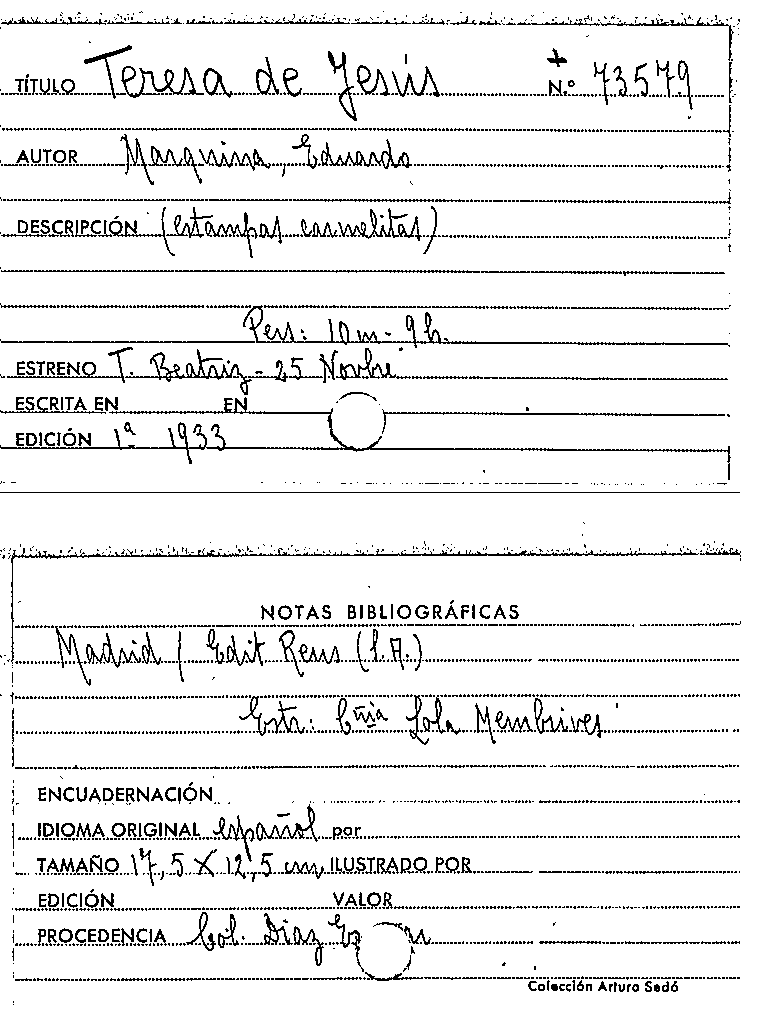 TÍTULO Teresa de Jesús + N.º 73579
AUTOR Marquina, Eduardo
DESCRIPCIÓN (estampas carmelitas)
Pers: 10 m - 9 h.
ESTRENO T. Beatriz - 25 Novbre
ESCRITA EN EN
EDICIÓN 1ª 1933
NOTAS BIBLIOGRÁFICAS
Madrid / Edit Reus (S.A.)
Estr: Cñía Lola Membrives
ENCUADERNACIÓN
IDIOMA ORIGINAL español por
TAMAÑO 17,5 X 12,5 cm ILUSTRADO POR
EDICIÓN VALOR
PROCEDENCIA Col. Díaz
Colección Arturo Sedó